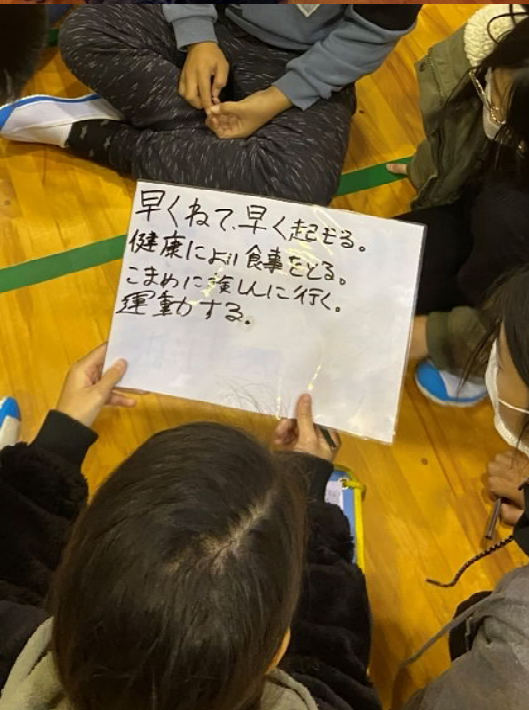 早くねて、早く起きる。
健康によい食事をとる。
こまめに検しんに行く。
運動する。